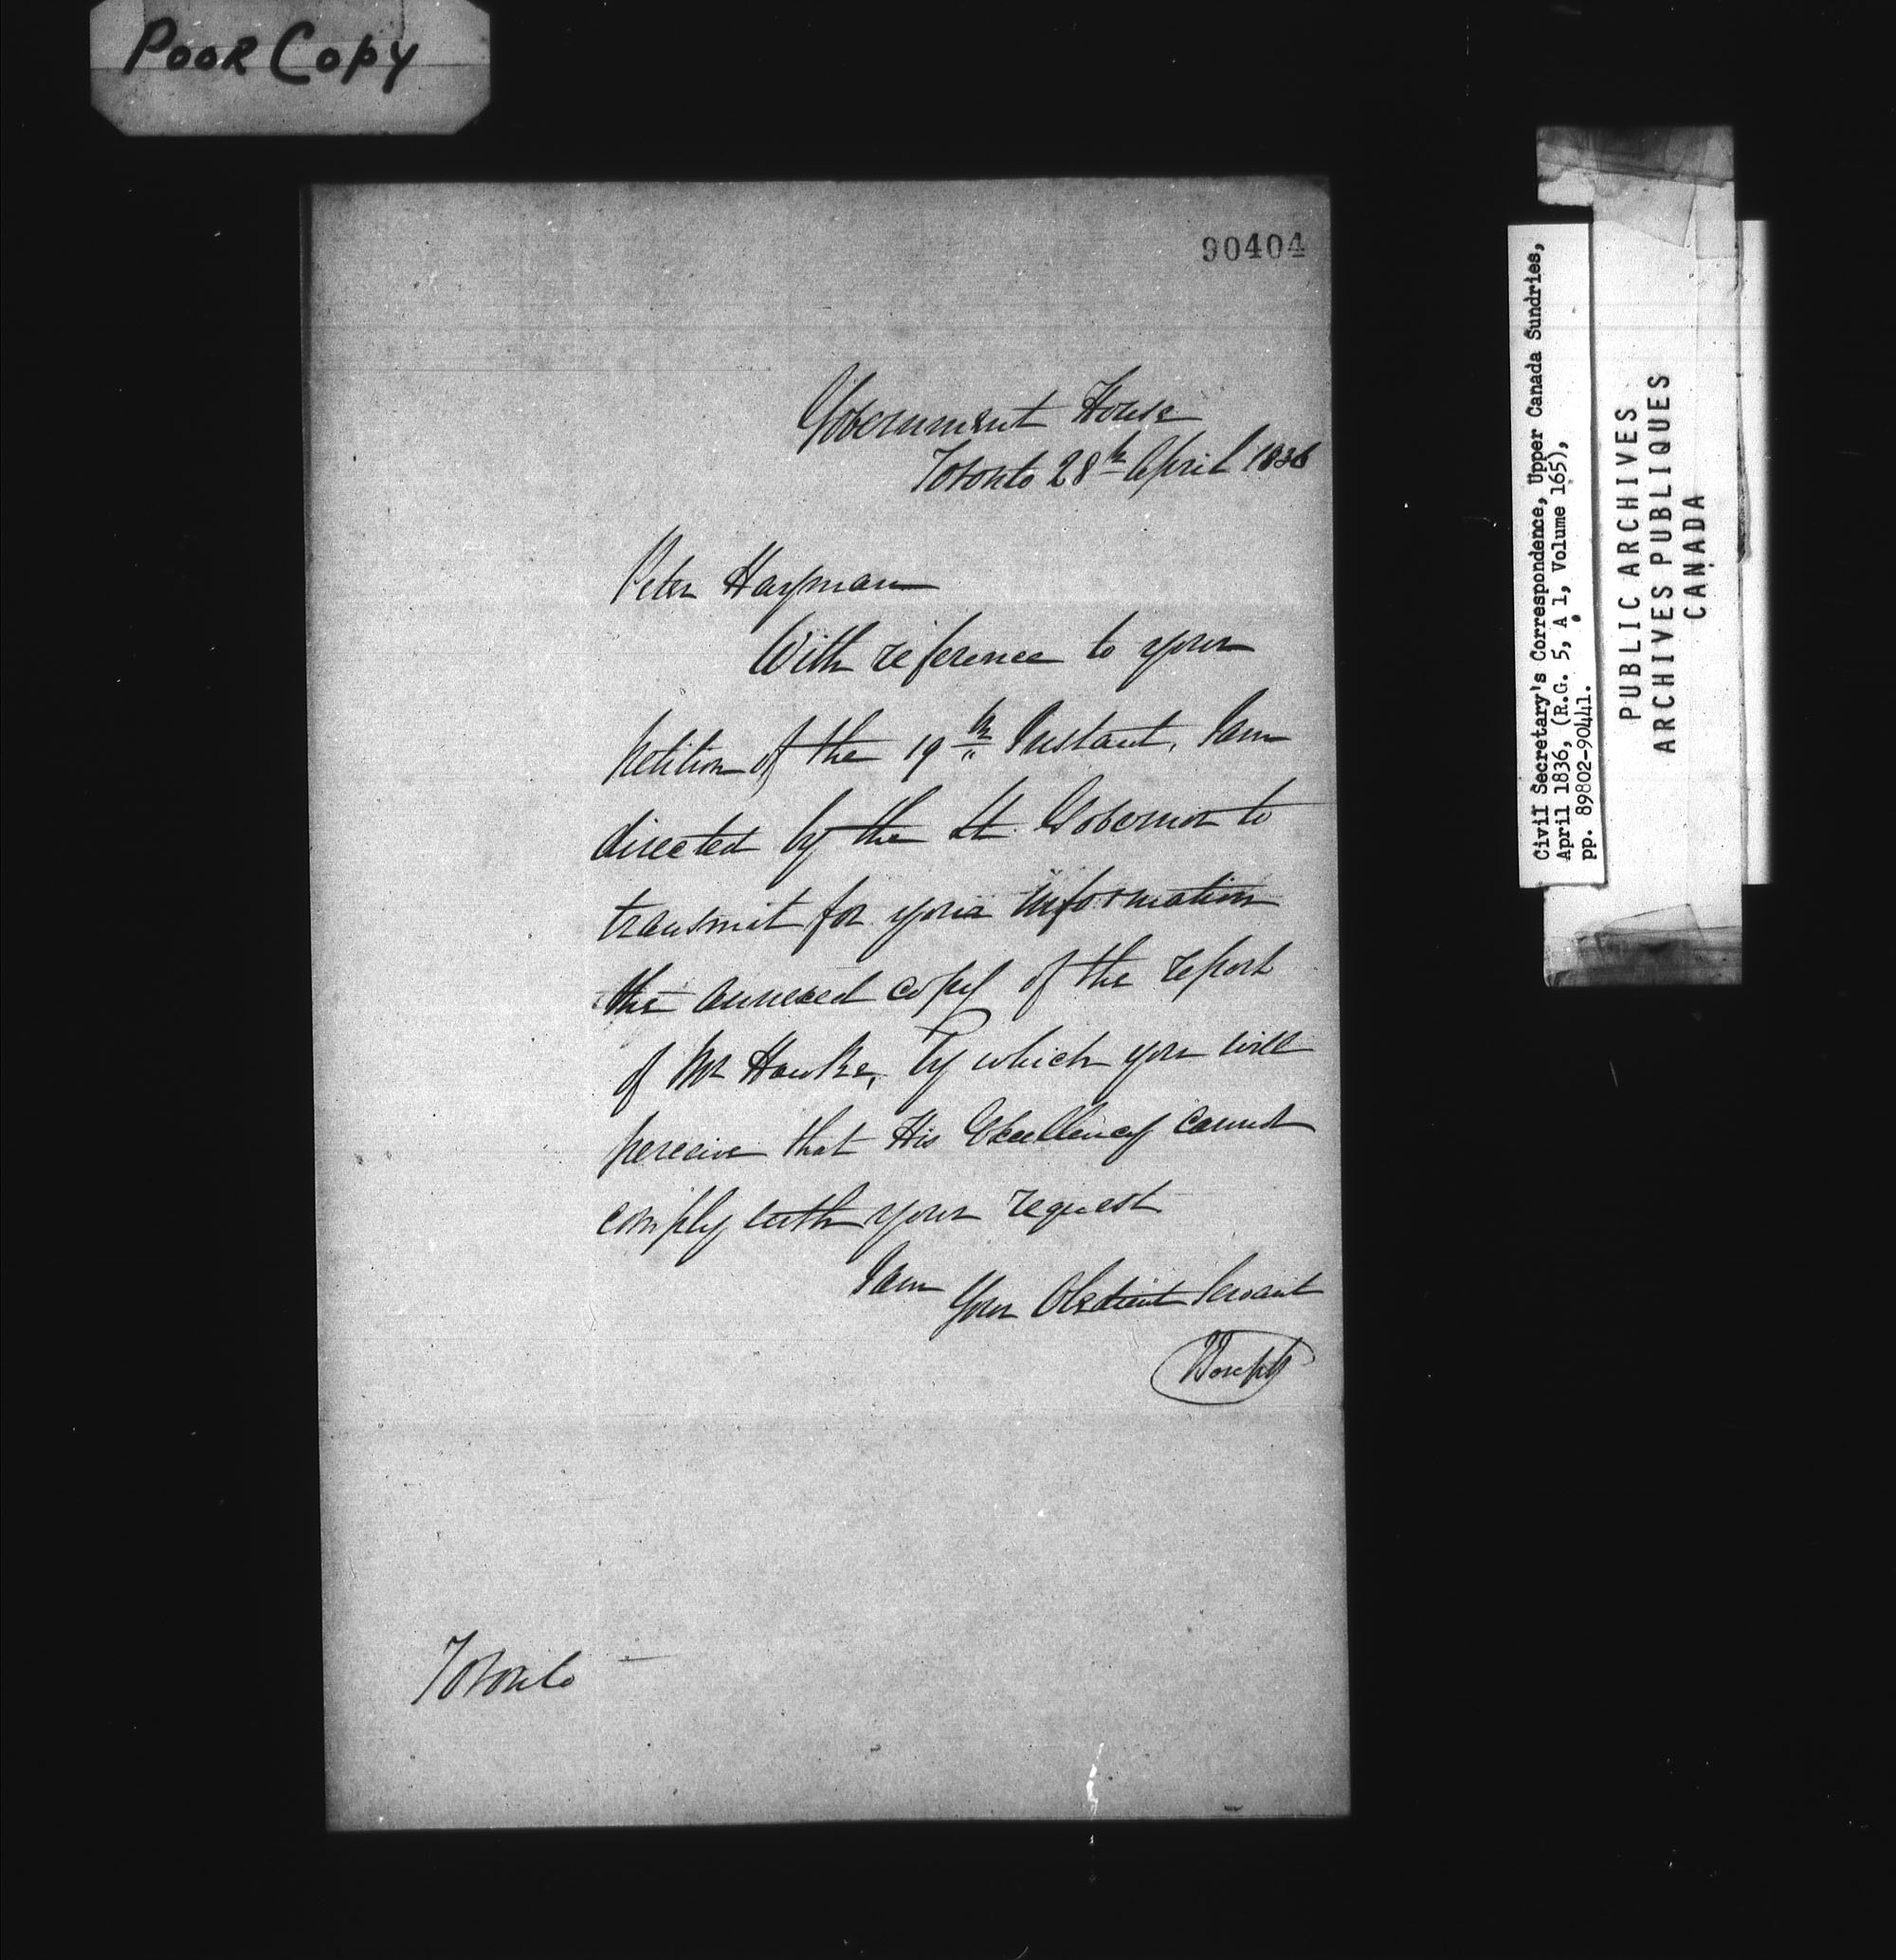 Poor Copy
90404
Government House
Toronto 28th April 1836
Peter Hayman
With reference to your
petition of the 19th Instant, I am
directed by the Lt. Governor to
transmit for your information
the annexed copy of the report
of Mr Hawke, by which you will
perceive that His Excellency cannot
comply with your request
I am
Your Obedient Servant
J Joseph
Toronto
Civil Secretary's Correspondence, Upper Canada Sundries,
April 1836, (R.G. 5, A 1, Volume 165),
pp. 89802-90441.
PUBLIC ARCHIVES
ARCHIVES PUBLIQUES
CANADA